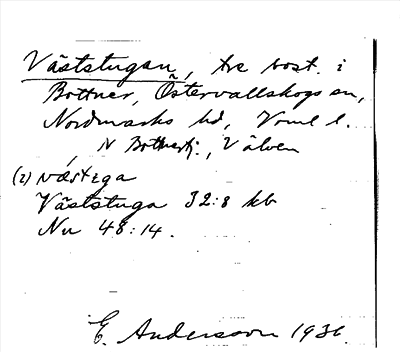 Väststugan, tre bost. i
Bottner, Östervallskogs sn,
Nordmarks hd, Vrml l.
N Bottnertj., Välven
(2) væst
Väststuga 32:8 kb
Nu 48:14.
E. Andersson 1936.